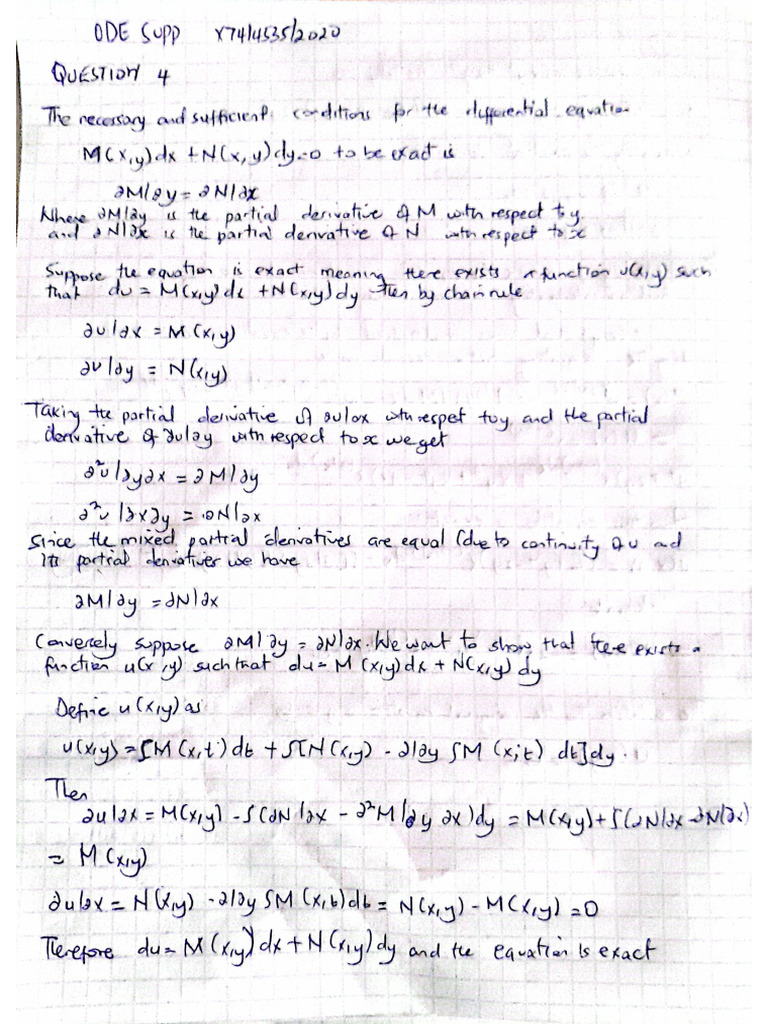 ODE SUPP X74/4535/2020
QUESTION 4
The necessary and sufficient conditions for the differential equation
M(x,y)dx + N(x,y)dy=0 to be exact is
∂M/∂y = ∂N/∂x
Where ∂M/∂y is the partial derivative of M with respect to y
and ∂N/∂x is the partial derivative of N with respect to x
Suppose the equation is exact meaning there exists a function u(x,y) such
that du = M(x,y)dx + N(x,y)dy then by chain rule
∂u/∂x = M(x,y)
∂u/∂y = N(x,y)
Taking the partial derivative of ∂u/∂x with respet to y and the partial
derivative of ∂u/∂y with respect to x we get
∂²u/∂y∂x = ∂M/∂y
∂²u/∂x∂y = ∂N/∂x
Since the mixed partial derivatives are equal (due to continuity of u and
its partial derivatives we have
∂M/∂y = ∂N/∂x
Conversely suppose ∂M/∂y = ∂N/∂x. We want to show that there exists a
function u(x,y) such that du = M(x,y)dx + N(x,y)dy
Define u(x,y) as
u(x,y) = ∫M(x,t)dt + ∫[N(x,y) - ∂/∂y ∫M(x,t) dt]dy.
Then
∂u/∂x = M(x,y) - ∫(∂N/∂x - ∂²M/∂y ∂x)dy = M(x,y) + ∫(∂N/∂x - ∂N/∂x)
= M(x,y)
∂u/∂x = N(x,y) - ∂/∂y ∫M(x,t)dt = N(x,y) - M(x,y) = 0
Therefore du = M(x,y)dx + N(x,y)dy and the equation is exact